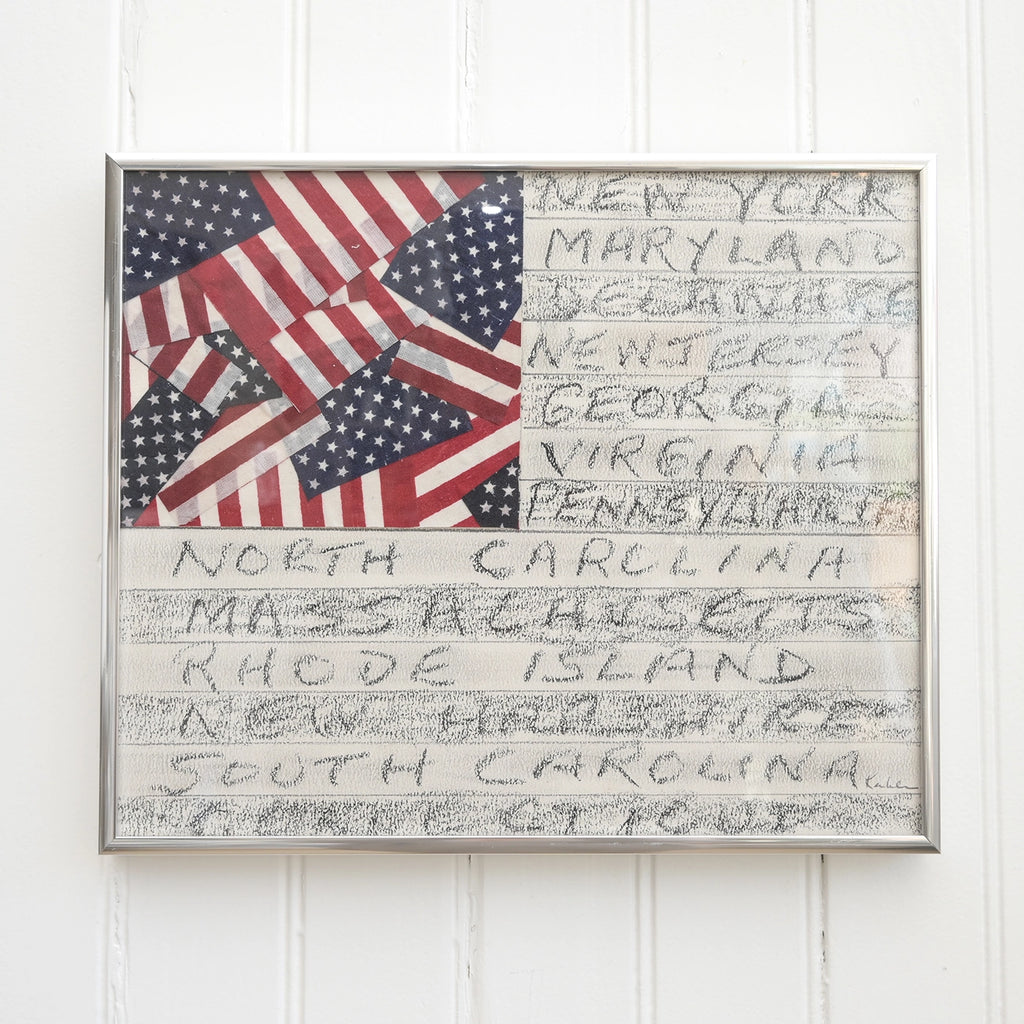 NEW YORK
MARYLAND
DELAWARE
NEW JERSEY
GEORGIA
VIRGINIA
PENNSYLVANIA
NORTH CAROLINA
MASSACHUSETTS
RHODE ISLAND
NEW HAMPSHIRE
SOUTH CAROLINA
CONNECTICUT